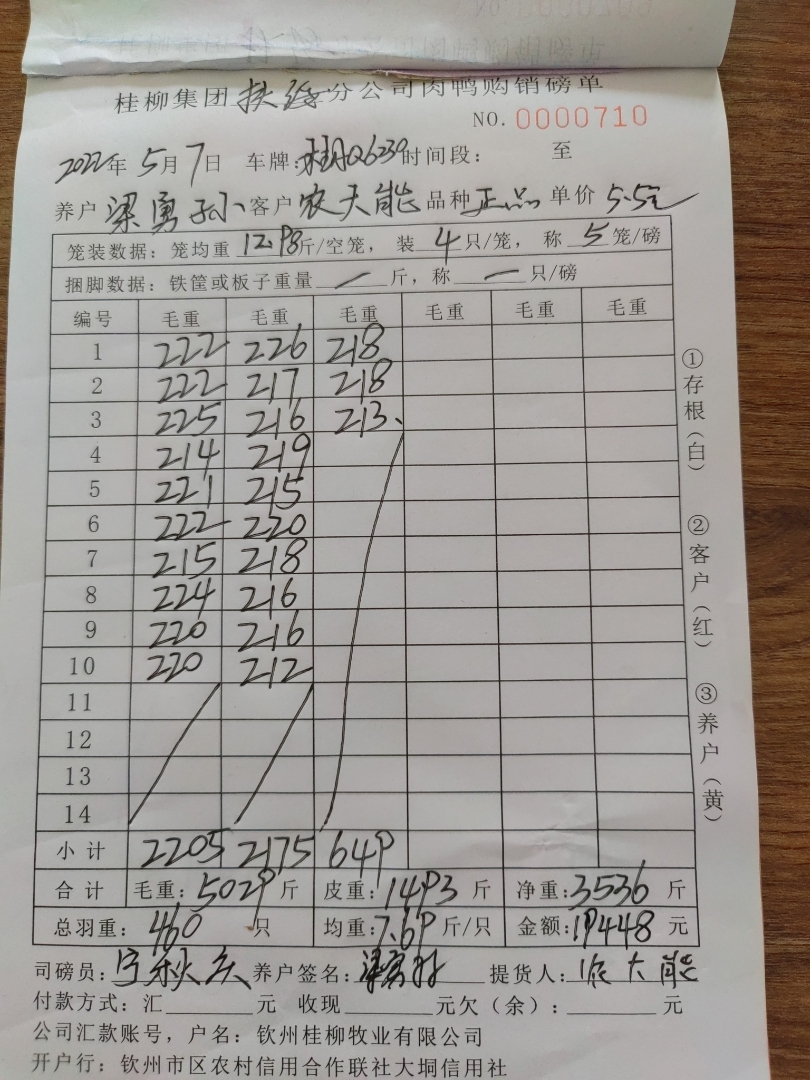 桂柳集团 扶绥 分公司肉鸭购销磅单
NO. 0000710
2022年 5月 7日 车牌: 桂A Q6239 时间段: 至
养户 梁勇孙 客户 农天能 品种 正品 单价 5.5元
笼装数据: 笼均重 12.98 斤/空笼, 装 4 只/笼, 称 5 笼/磅
捆脚数据: 铁筐或板子重量 — 斤, 称 — 只/磅
编号 毛重 毛重 毛重 毛重 毛重 毛重
1 222 226 218
2 222 217 218
3 225 216 213
4 214 219
5 221 215
6 222 220
7 215 218
8 224 216
9 220 216
10 220 212
11
12
13
14
小计 2205 2175 649
合计 毛重: 5029 斤 皮重: 1493 斤 净重: 3536 斤
总羽重: 460 只 均重: 7.69 斤/只 金额: 19448 元
司磅员: 宁秋 养户签名: 提货人: 大能
付款方式: 汇 元 收现 元欠(余): 元
公司汇款账号, 户名: 钦州桂柳牧业有限公司
开户行: 钦州市区农村信用合作联社大垌信用社
①存根(白)
②客户(红)
③养户(黄)